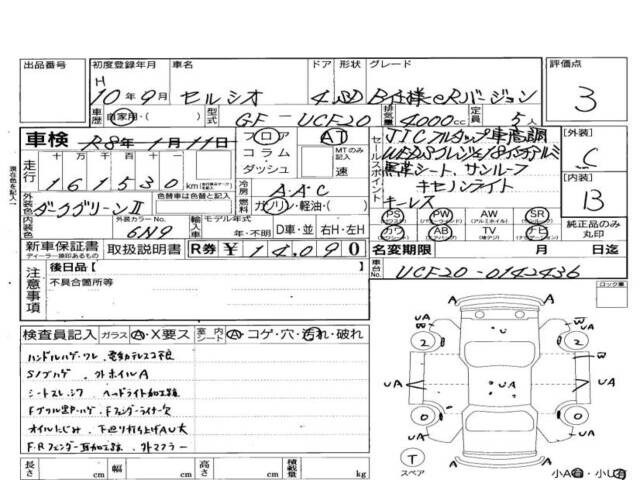 出品番号
初度登録年月 車名 ドア 形状 グレード 評価点
H
10年9月 セルシオ 4 SD B仕様eRバージョン 3
車歴 自家用・( ) 型式 GF-UCF20 排気量 4000cc 定員 5人
車検 R8年1月11日 フロア AT
コラム・ MTのみ記入
ダッシュ 速
走行 十万 万 千 百 十 一
161530 km
冷房 A.A.C
外装色 ダークグリーンⅡ 色替車は色替と記入 燃料 ガソリン・軽油・( )
内装色 外装カラーNo. 6N9 輸入車 モデル年式 年・不明 D車・並 右H・左H
新車保証書 取扱説明書 R券 ¥14,090
ディーラー捺印あるもの
セールスポイント
JICフルタップ車高調
黒革シート、サンルーフ
キセノンライト
キーレス
[外装] C
[内装] B
PS PW AW SR
(パワーウィンド) (アルミホイル) (サンルーフ)
カワ AB TV ナビ
(エアバック)
純正品のみ丸印
名変期限 月 日迄
車台No. UCF20-0142436
ロック車
注意事項
後日品[ ]
不具合箇所等
検査員記入 ガラス A・X要ス 室内シート A・コゲ・穴・汚れ・破れ
ハンドルハゲ・ワレ、電動テレスコ不良
Sノブハゲ、外ホイルA
シートスレ、シワ ヘッドライト加工跡
Fグリル黒P・ハゲ、Fフェンダーライナー欠
オイルにじみ、下廻り打ち上げAU大
F・Rフェンダー耳加工跡、外マフラー
長さ cm 幅 cm 高さ cm 積載量 kg
UA
UA
W
2
2
W
UA
UA
UA
0
0
UA
UA
T
スペア
小A有・小U有